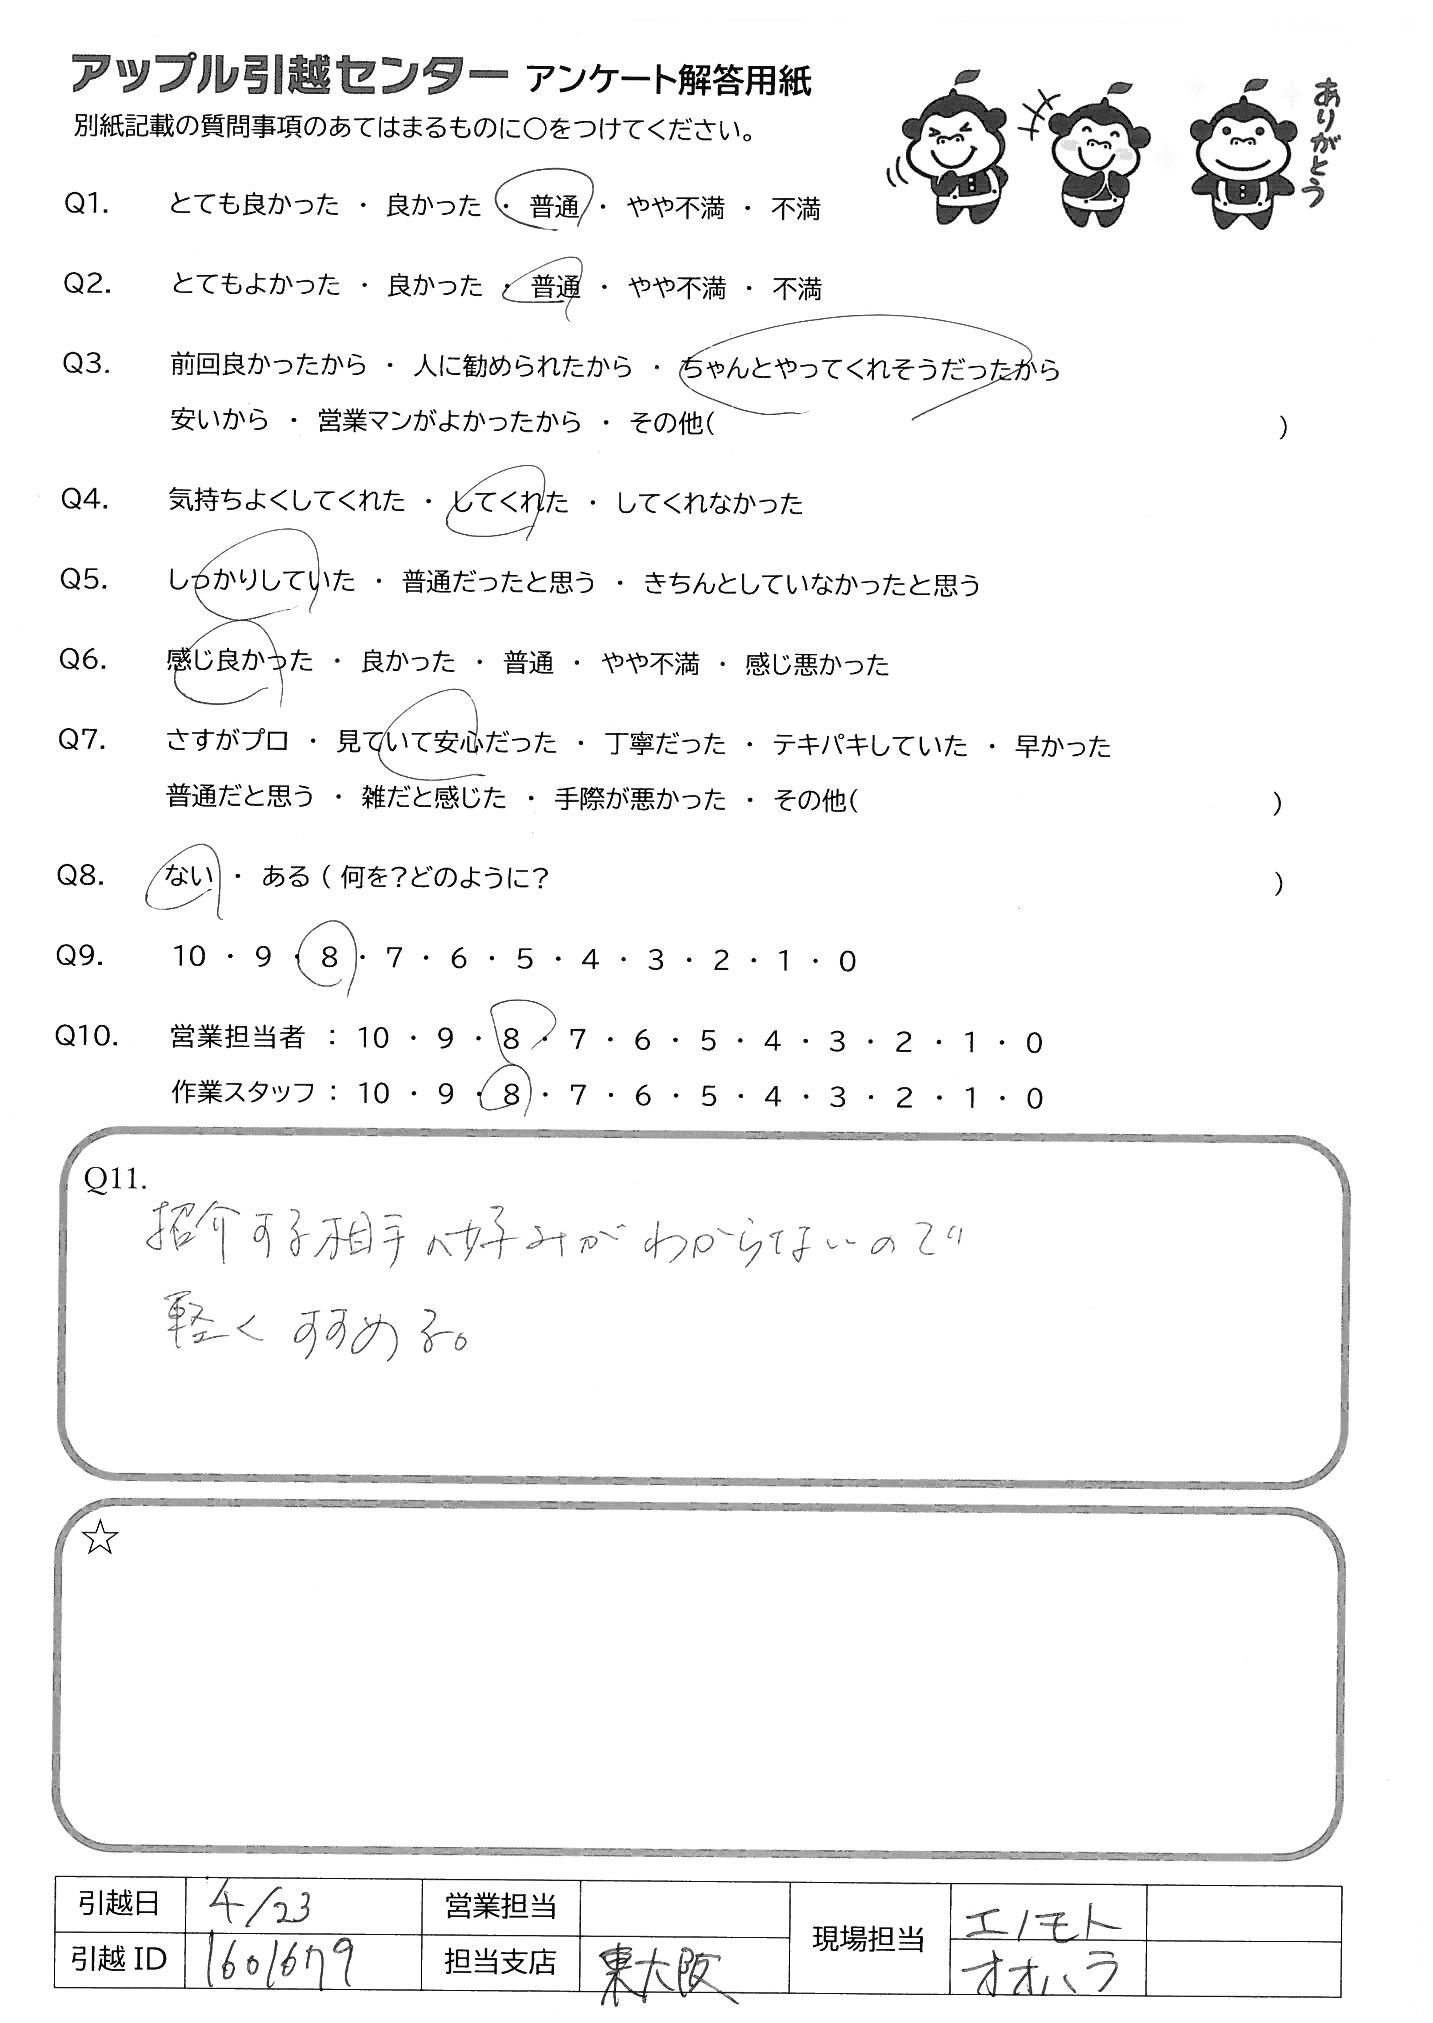 アップル引越センター アンケート解答用紙
別紙記載の質問事項のあてはまるものに○をつけてください。
ありがとう
Q1. とても良かった ・ 良かった ・ 普通 ・ やや不満 ・ 不満
Q2. とてもよかった ・ 良かった ・ 普通 ・ やや不満 ・ 不満
Q3. 前回良かったから ・ 人に勧められたから ・ ちゃんとやってくれそうだったから
安いから ・ 営業マンがよかったから ・ その他( )
Q4. 気持ちよくしてくれた ・ してくれた ・ してくれなかった
Q5. しっかりしていた ・ 普通だったと思う ・ きちんとしていなかったと思う
Q6. 感じ良かった ・ 良かった ・ 普通 ・ やや不満 ・ 感じ悪かった
Q7. さすがプロ ・ 見ていて安心だった ・ 丁寧だった ・ テキパキしていた ・ 早かった
普通だと思う ・ 雑だと感じた ・ 手際が悪かった ・ その他( )
Q8. ない ・ ある ( 何を?どのように? )
Q9. 10 ・ 9 ・ 8 ・ 7 ・ 6 ・ 5 ・ 4 ・ 3 ・ 2 ・ 1 ・ 0
Q10. 営業担当者 : 10 ・ 9 ・ 8 ・ 7 ・ 6 ・ 5 ・ 4 ・ 3 ・ 2 ・ 1 ・ 0
作業スタッフ : 10 ・ 9 ・ 8 ・ 7 ・ 6 ・ 5 ・ 4 ・ 3 ・ 2 ・ 1 ・ 0
Q11.
紹介する相手の好みがわからないので
軽くすすめる。
☆
引越日 4/23 営業担当 現場担当 エノモト
引越ID 1601679 担当支店 東大阪 オオハラ